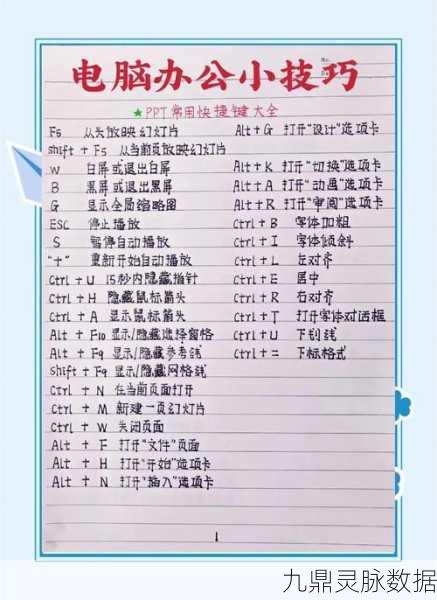 电脑办公小技巧
★PPT常用快捷键大全
F5 从头放映幻灯片
Alt+G 打开"设计"选项卡
shift + F5 从当前页放映幻灯片
W 白屏或退出白屏
Alt+K 打开"切换"选项卡
B 黑屏或退出黑屏
Alt+A 打开"动画"选项卡
G 显示全局缩略图
Alt+R 打开"审阅"选项卡
ESC 停止播放
Ctrl+B 字体加粗
S 暂停自动播放
Ctrl+I 字体倾斜
"+" 重新开始自动播放
Ctrl+L 左对齐
Ctrl+U 15秒内隐藏指针
Ctrl+E 居中
Ctrl+H 隐藏鼠标箭头
Ctrl+R 右对齐
Ctrl+A 显示鼠标箭头
Ctrl+T 打开字体对话框
Alt + F10 显示/隐藏选择窗格
Ctrl+U 下划线
Alt + F9 显示/隐藏参考线
Ctrl+= 下标格式
shift + F9 显示/隐藏网格线
Ctrl + N 在当前页面打开
Ctrl + M 新建一页幻灯片
Ctrl + W 关闭页面
Alt + F 打开"文件"页面
Alt + H 打开"开始"选项卡
Alt + N 打开"插入"选项卡
1
九鼎灵脉数据